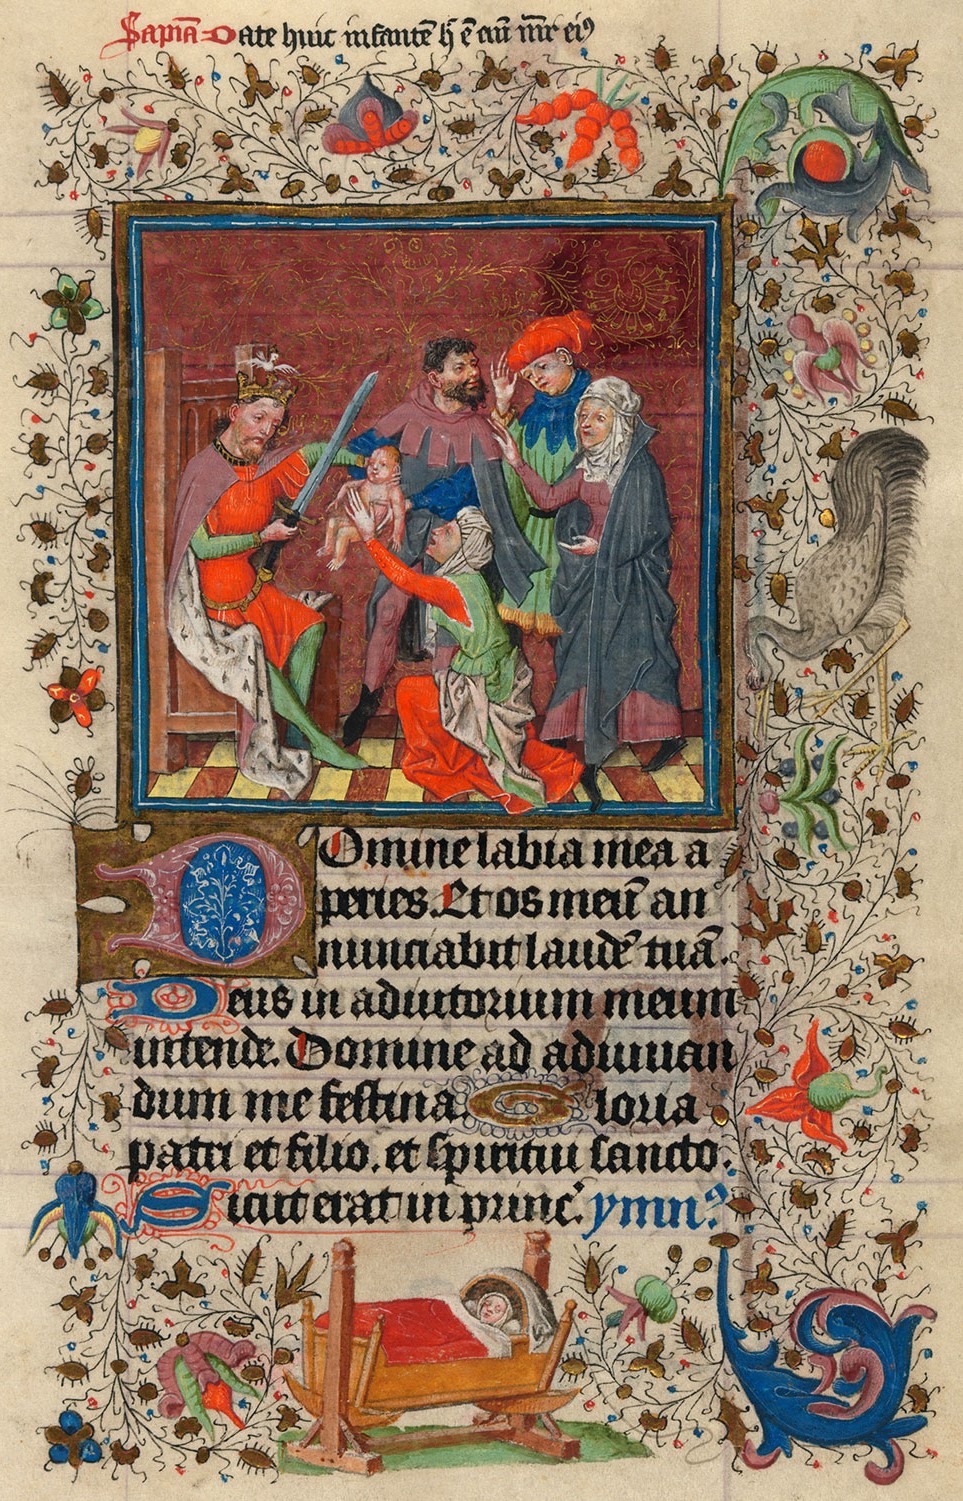 Sapia Date huic infantē h̄ ē eni mr̄ ei⁹
Domine labia mea a
peries. Et os meū an
nunciabit laudē tuā.
Deus in adiutorium meum
intende. Domine ad adiuuan
dum me festina. Gloria
patri et filio. et spiritui sancto.
Sicut erat in princ̄. ymn⁹